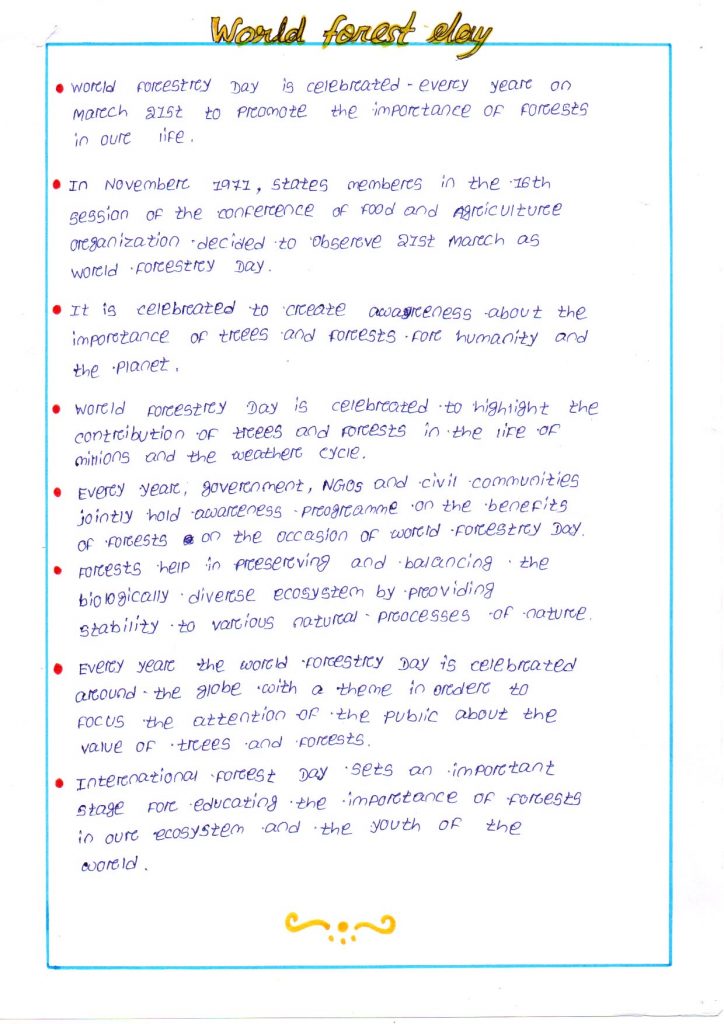 World forest day
• World forestry Day is celebrated - every year on
March 21st to promote the importance of forests
in our life.
• In November 1971, states members in the 16th
session of the conference of food and Agriculture
organization decided to observe 21st March as
world forestry Day.
• It is celebrated to create awareness about the
importance of trees and forests for humanity and
the planet.
• World forestry Day is celebrated to highlight the
contribution of trees and forests in the life of
millions and the weather cycle.
• Every year, government, NGOs and civil communities
jointly hold awareness programme on the benefits
of forests on the occasion of world forestry Day.
• Forests help in preserving and balancing the
biologically diverse ecosystem by providing
stability to various natural processes of nature.
• Every year the world forestry Day is celebrated
around the globe with a theme in order to
focus the attention of the public about the
value of trees and forests.
• International forest Day sets an important
stage for educating the importance of forests
in our ecosystem and the youth of the
world.